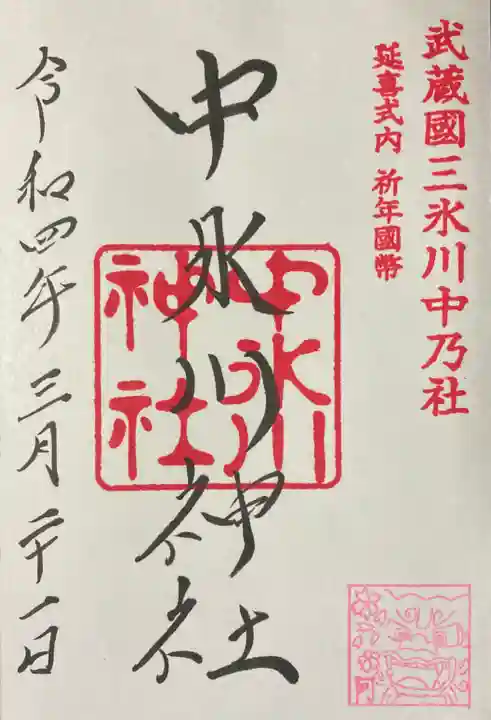 武蔵國三氷川中乃社
延喜式内 祈年國幣
中氷川神社
中氷川
神社
令和四年三月二十一日
阿